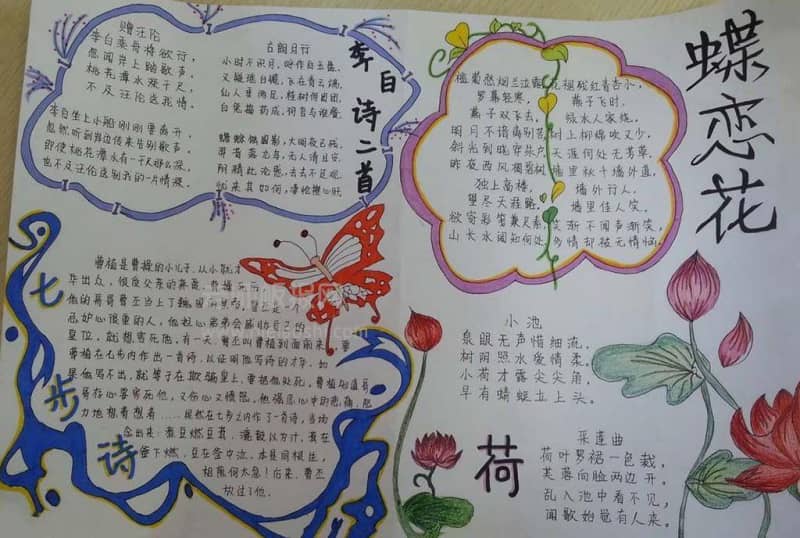 李白诗二首
赠汪伦
李白乘舟将欲行，
忽闻岸上踏歌声，
桃花潭水深千尺，
不及汪伦送我情。
李白坐上小船刚刚要离开，
忽然听到岸边传来告别歌声，
即使桃花潭水有一千那么深，
也不及汪伦送别我的一片情
古朗月行
小时不识月，呼作白玉盘，
又疑瑶台镜，飞在青云端，
仙人垂两足，桂树何团团，
白兔捣药成，问言与谁餐
蟾蜍蚀圆影，大明夜已残，
羿昔落九乌，天人清且安，
阴精此沦惑，去去不足观，
忧来其如何，凄怆摧心肝
蝶恋花
槛菊愁烟兰泣露
罗幕轻寒，
燕子双飞去，
明月不谙离别苦
斜光到晓穿朱户，
昨夜西风凋碧树，
独上高楼，
望尽天涯路，
欲寄彩笺兼尺素，
山长水阔知何处
花褪残红青杏小，
燕子飞时，
绿水人家绕，
树上柳绵吹又少，
天涯何处无芳草，
墙里秋千墙外道，
墙外行人，
墙里佳人笑，
笑渐不闻声渐笑，
多情却被无情恼，
七步诗
曹植是曹操的小儿子，从小就才
华出众，
他的哥哥曹丕当上了魏
忌妒心很重的人，他担心弟弟会威胁自己的
皇位，就想害死他，有一天，曹丕叫曹植到面前来，要
曹植在七步内作出一首诗，以证明他写诗的才华，如
果他写不出，就等于在欺骗皇上，要把他处死，曹植知道哥
哥存心要害死他，又伤心又愤怒，他强忍心中的悲痛，努
力地想着想着……果然在七步之内作了一首诗，当场
念出来：煮豆燃豆萁，漉豉以为汁，萁在
釜下燃，豆在釜中泣，本是同根生，
相煎何太急！后来，曹丕
放过了他。
小池
泉眼无声惜细流，
树阴照水爱情柔。
小荷才露尖尖角，
早有蜻蜓立上头。
荷
采莲曲
荷叶罗裙一色裁，
芙蓉向脸两边开，
乱入池中看不见，
闻歌始觉有人来。